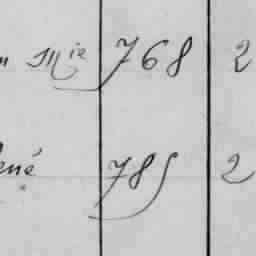 n Mie 768 2
ené 785 2